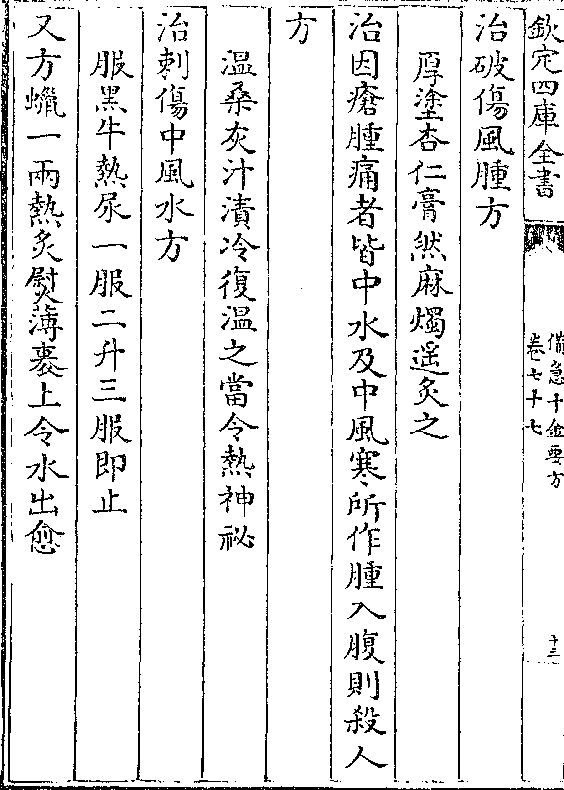 欽定四庫全書
備急千金要方
卷七十七
十三
治破傷風腫方
厚塗杏仁膏然麻燭遥炙之
治因瘡腫痛者皆中水及中風寒所作腫入腹則殺人
方
温桑灰汁漬冷復温之當令熱神祕
治刺傷中風水方
服黑牛熱尿一服二升三服即止
又方蠟一兩熱炙熨薄裹上令水出愈